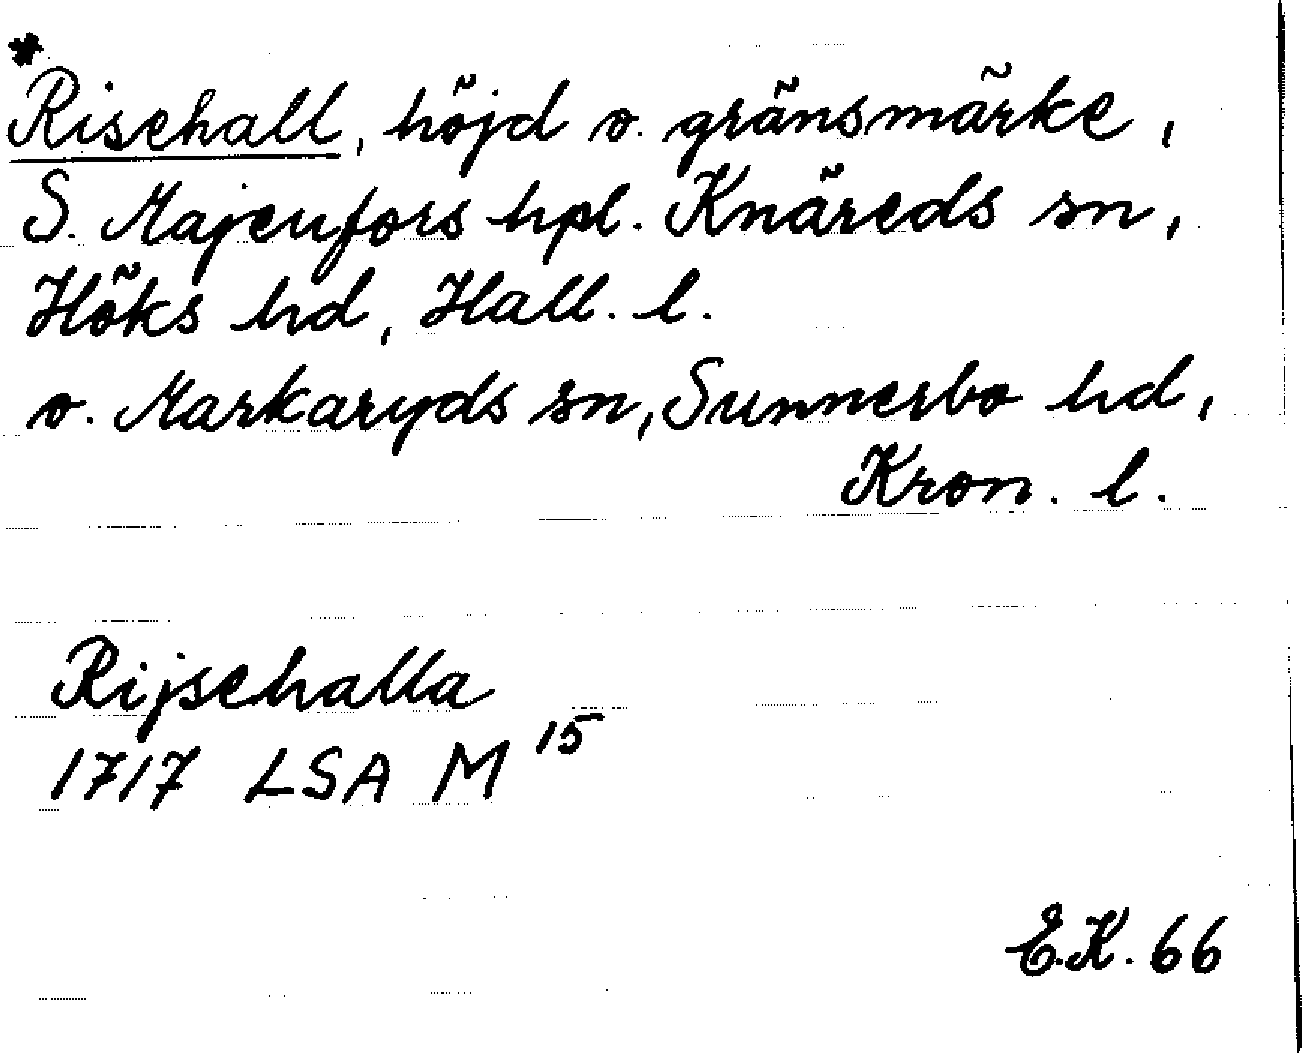 *
Risehall, höjd o. gränsmärke,
S. Majenfors hpl. Knäreds sn,
Höks hd, Hall. l.
o. Markaryds sn, Sunnerbo hd,
Kron. l.
Rijsehalla
1717 LSA M 15
E.K. 66